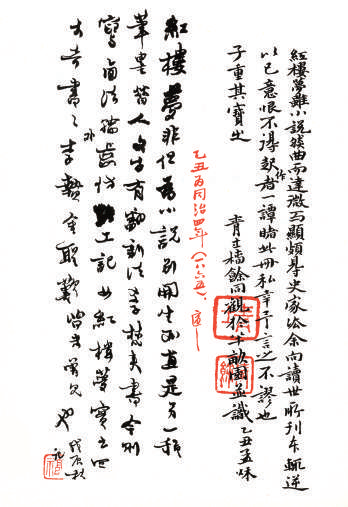 紅樓夢雖小說然曲而達微而顯頗得史家法余向讀世所刊本輒逆
以己意恨不得起作者一譚睹此冊私幸予言之不謬也
子重其寶之
青士椿餘同觀於半畝園并識乙丑孟秋
乙丑為同治四年(一八六五)。適
紅樓夢非但為小說別開生面直是另一種
筆墨昔人文字有翻新法學梵夾書今則
寫西法輪齒仿考工記如紅樓夢實出四
大奇書之外李贄金聖歎皆未曾見也
戊辰秋
記